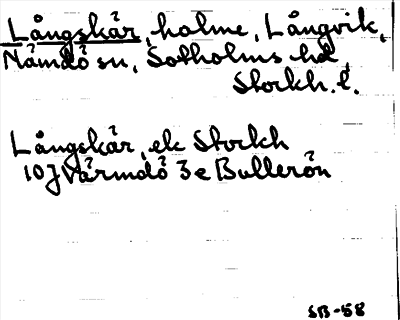 Långskär, holme, Långvik,
Nämdö sn, Sotholms hd,
Stockh. l.
Långskär, ek Stockh
10J Värmdö 3e Bullerön
SB-58